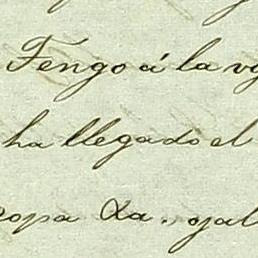 Tengo á la v
ha llegado el
ropa La., ojal